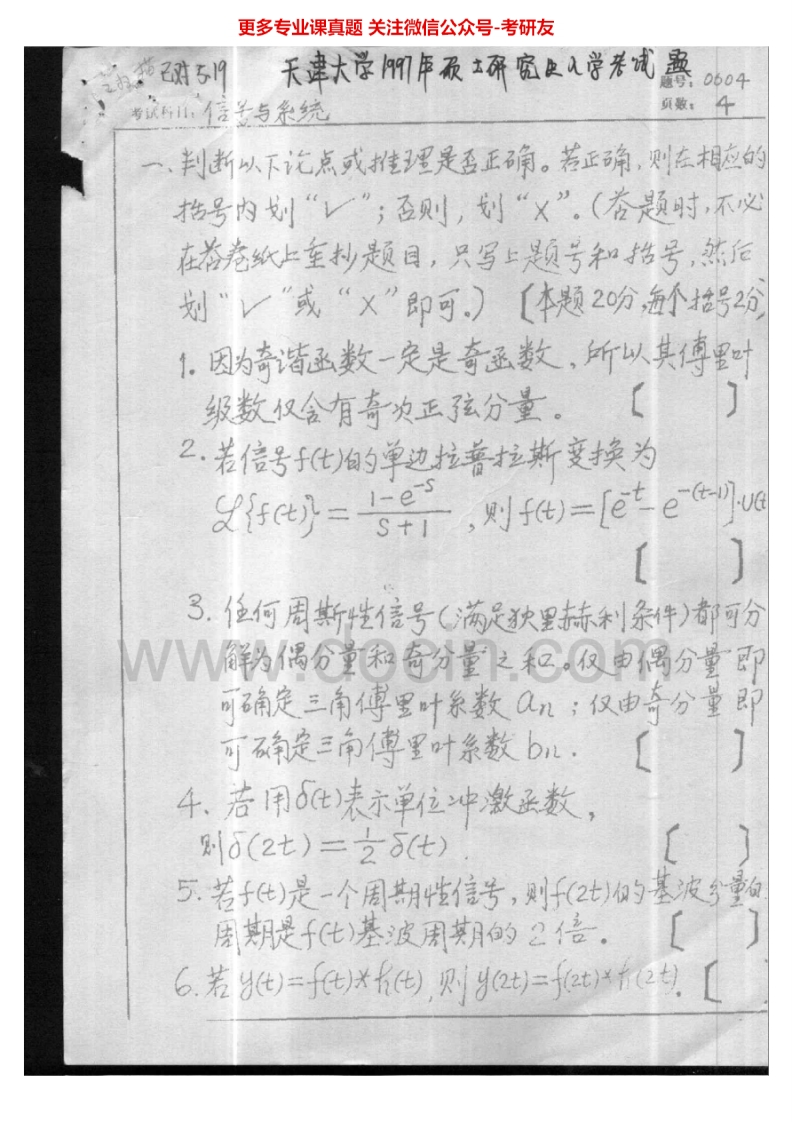 更多专业课真题 关注微信公众号-考研友
天津大学1997年硕士研究生入学考试题
题号：0604
考试科目：信号与系统
页数：4
一、判断以下论点或推理是否正确。若正确，则在相应的
括号内划“√”；否则，划“×”。（答题时，不必
在答卷纸上重抄题目，只写上题号和括号，然后
划“√”或“×”即可。）〔本题20分，每个括号2分
1. 因为奇谐函数一定是奇函数，所以其傅里叶
级数仅含有奇次正弦分量。〔 〕
2. 若信号f(t)的单边拉普拉斯变换为
ℒ{f(t)} = (1-e^{-s})/(s+1)，则f(t)=[e^{-t}-e^{-(t-1)}]·u(t
〔 〕
3. 任何周期性信号（满足狄里赫利条件）都可分
解为偶分量和奇分量之和。仅由偶分量即
可确定三角傅里叶系数an；仅由奇分量即
可确定三角傅里叶系数bn.〔 〕
4. 若用δ(t)表示单位冲激函数，
则δ(2t)=1/2 δ(t).〔 〕
5. 若f(t)是一个周期性信号，则f(2t)的基波分量的
周期是f(t)基波周期的2倍。〔 〕
6. 若y(t)=f(t)*h(t),则y(2t)=f(2t)*h(2t).〔
www.docin.com